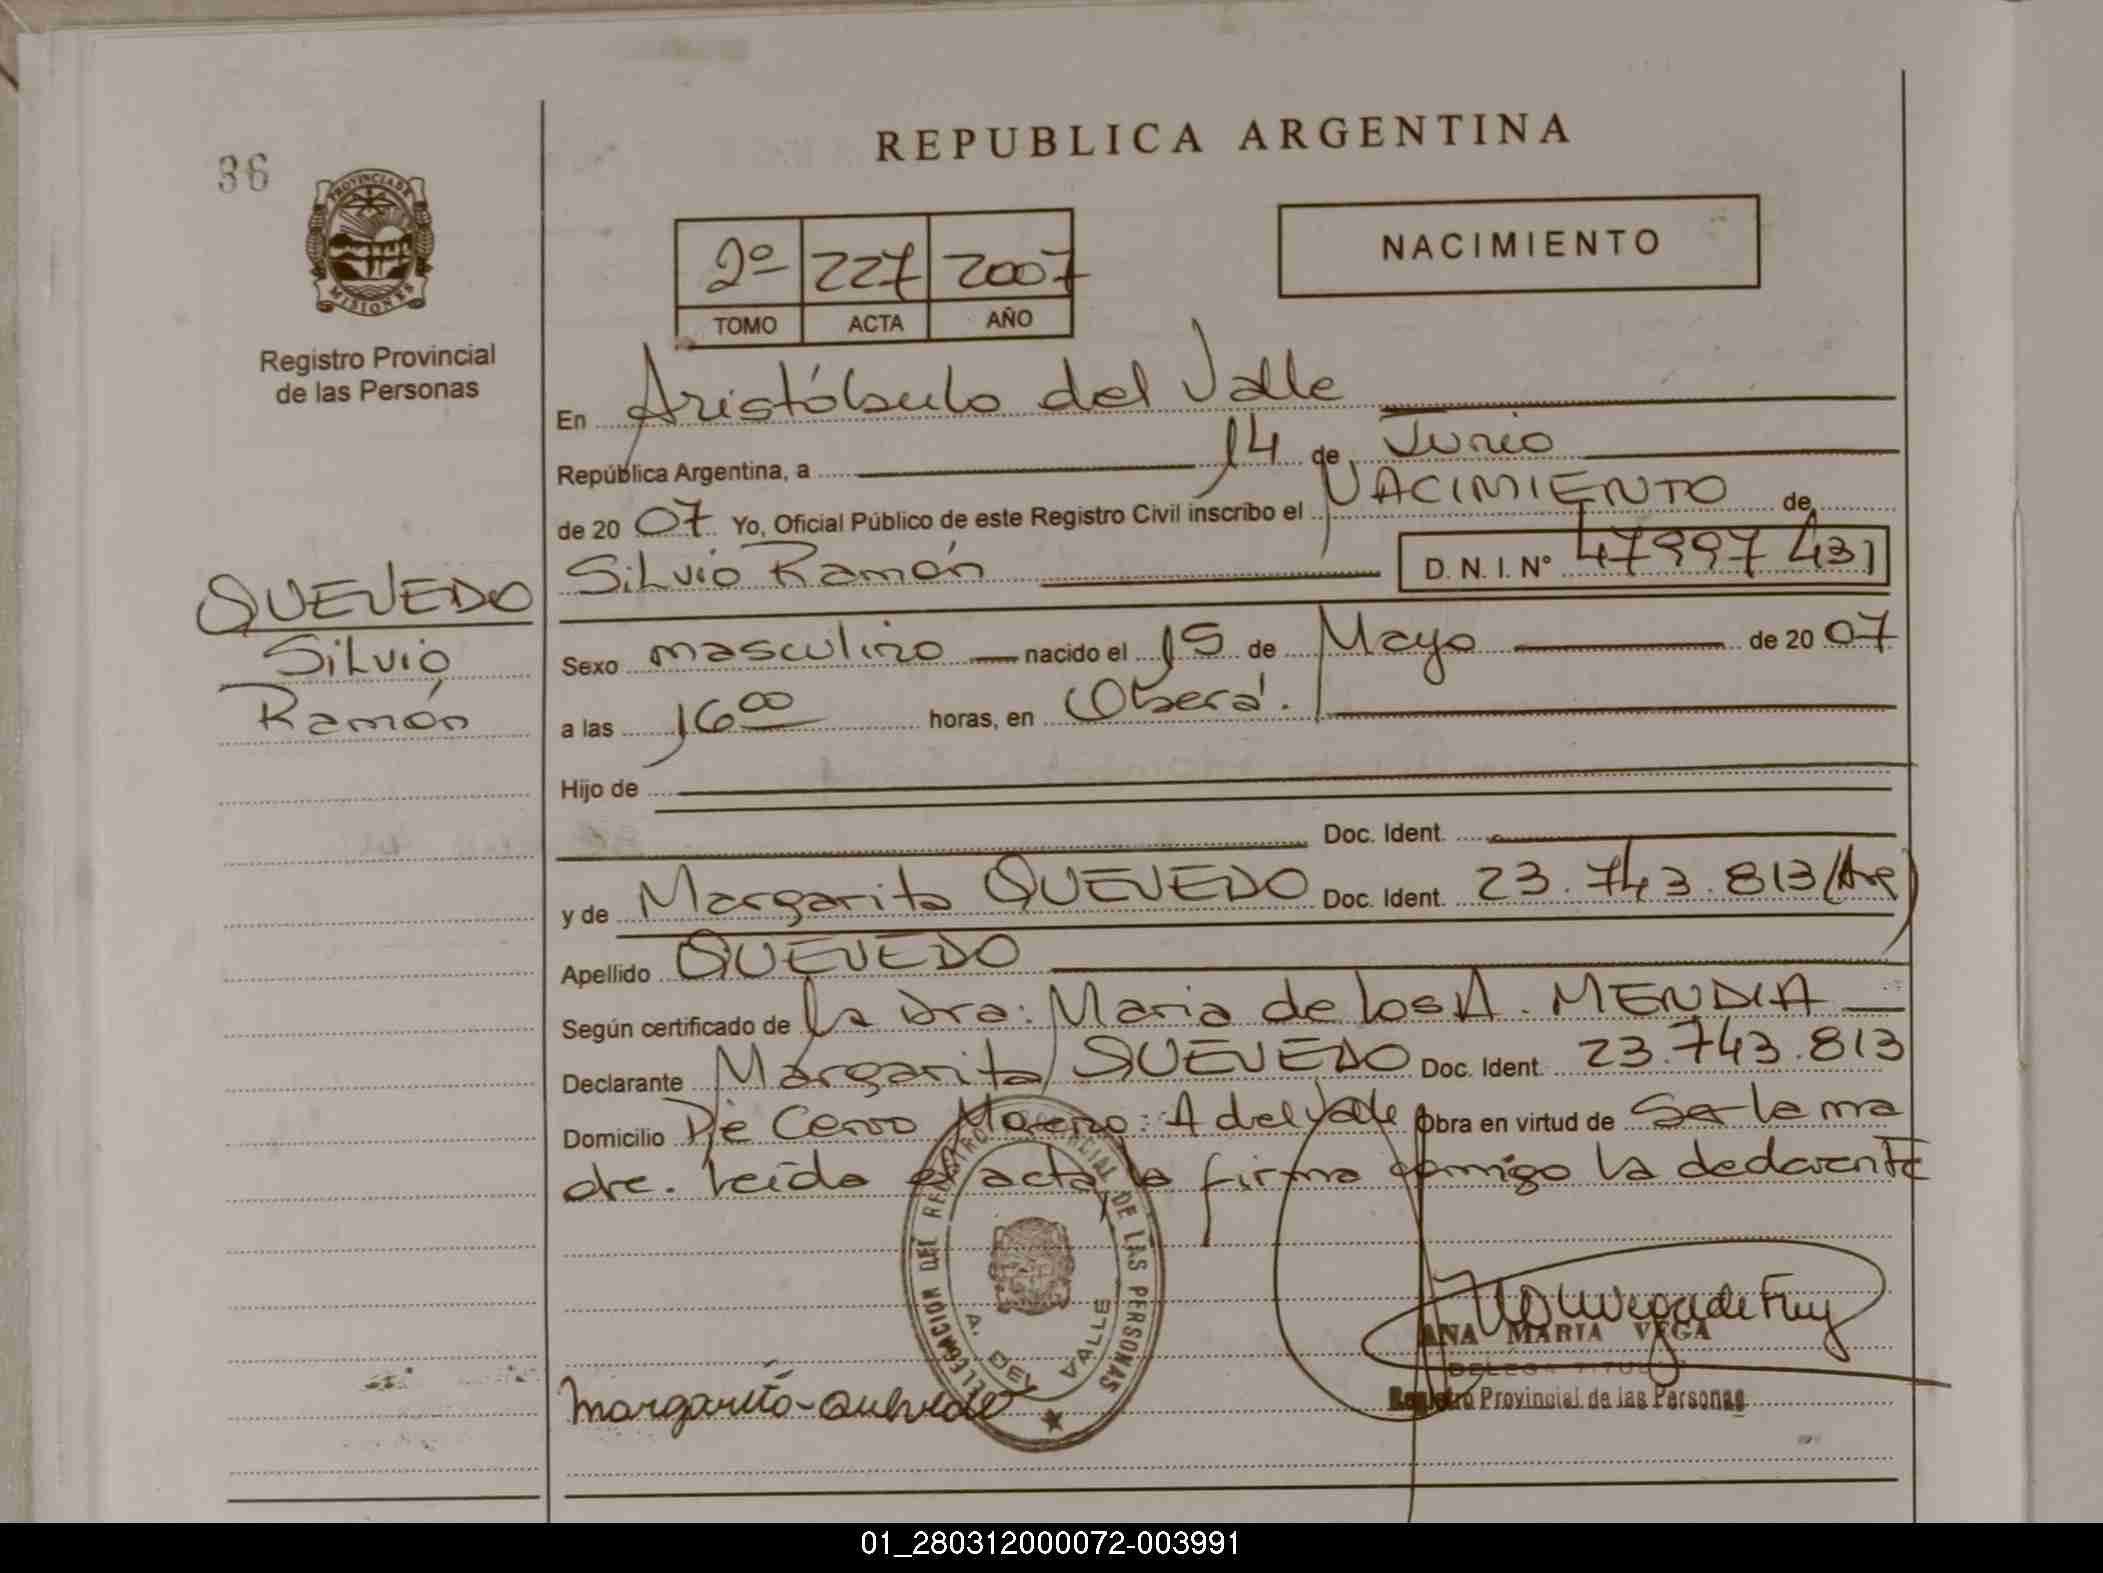 REPUBLICA ARGENTINA
36
PROVINCIA DE
MISIONES
Registro Provincial
de las Personas
2º 227 2007
TOMO ACTA AÑO
NACIMIENTO
En Aristóbulo del Valle
República Argentina, a 14 de Junio
de 2007 Yo, Oficial Público de este Registro Civil inscribo el NACIMIENTO de
Silvio Ramón D. N. I. Nº 47997431
QUEVEDO
Silvio
Ramón
Sexo masculino nacido el 15 de Mayo de 2007
a las 16 00 horas, en Oberá.
Hijo de
Doc. Ident.
y de Margarita QUEVEDO Doc. Ident. 23.743.813 (Arg)
Apellido QUEVEDO
Según certificado de la Dra: Maria de los A. MENDIA
Declarante Margarita QUEVEDO Doc. Ident. 23.743.813
Domicilio Pje Cerro Moreno: A del Valle Obra en virtud de Ser la ma
dre. Leída el acta la firma conmigo la declarante
DELEGACION DEL REGISTRO PROVINCIAL DE LAS PERSONAS
A. DEL VALLE
Margarita-Quevedo
ANA MARIA VEGA
DELEGA TITULAR
Registro Provincial de las Personas
01_280312000072-003991